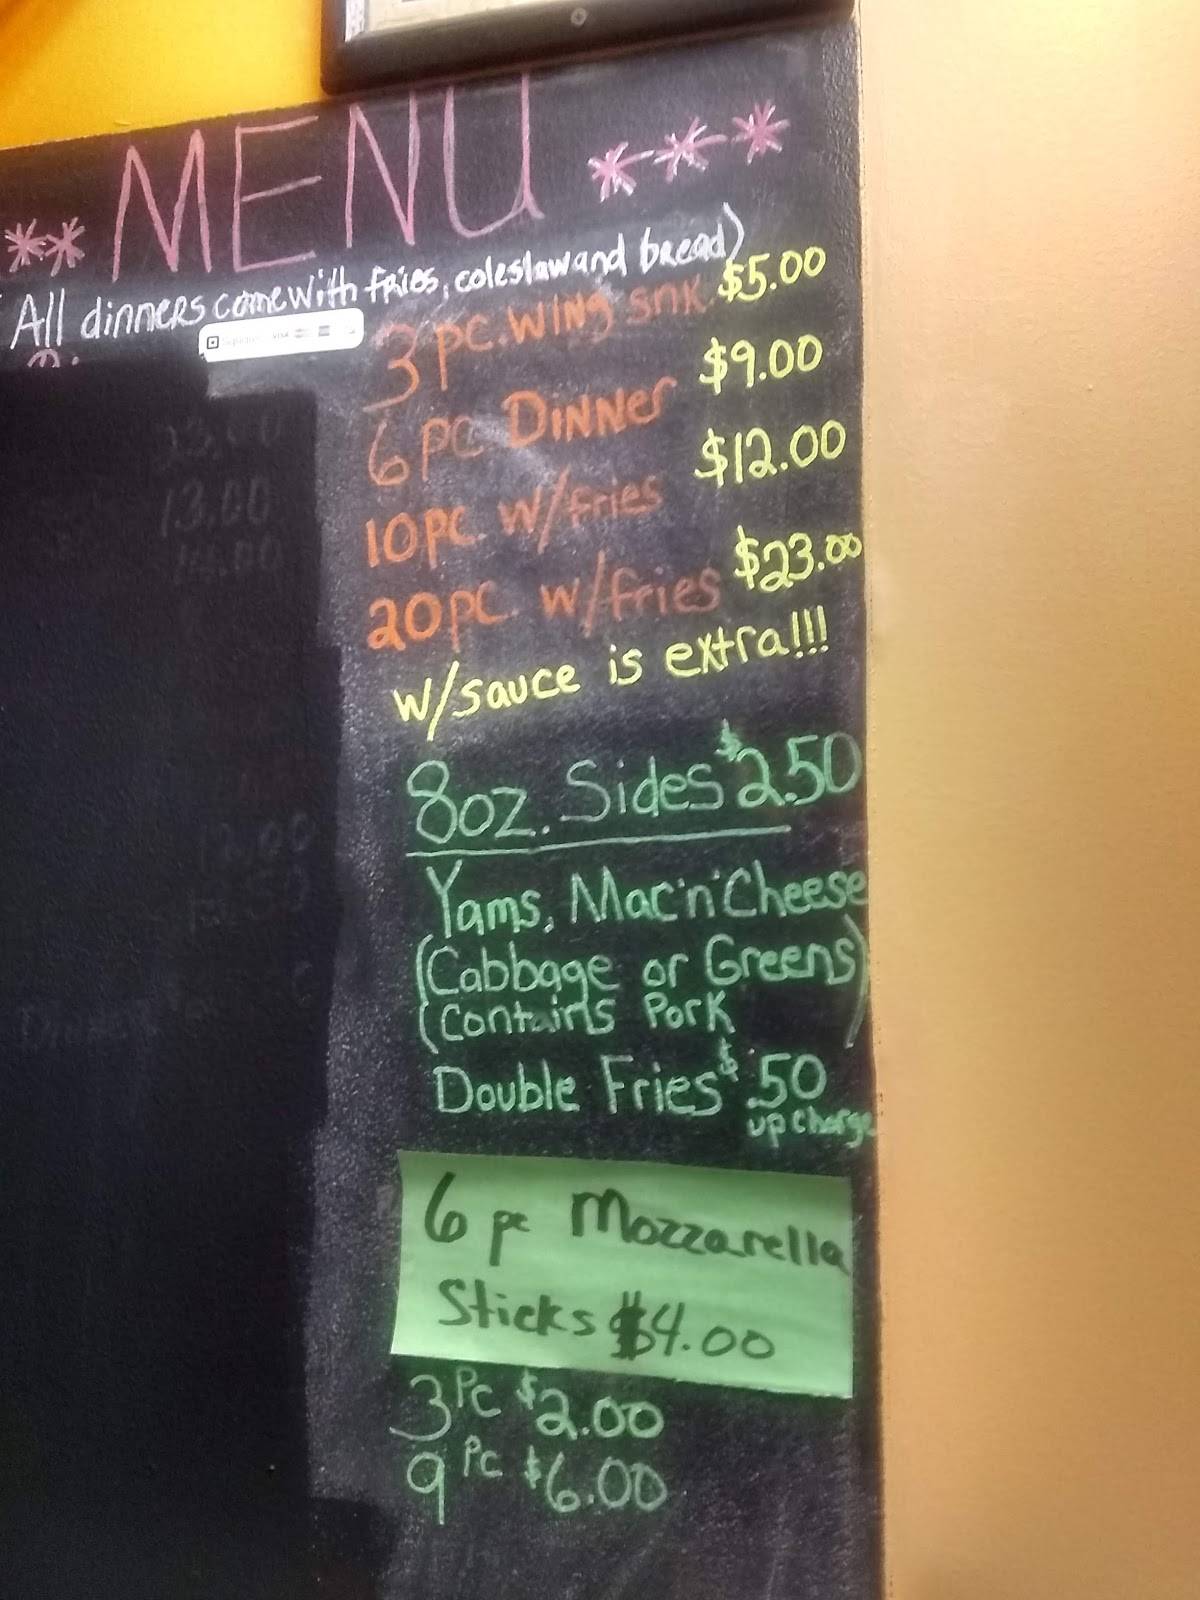 ** MENU ***
All dinners come with fries, coleslaw and bread)
3 pc. wing snk. $5.00
6 pc Dinner $9.00
10 pc w/fries $12.00
20 pc w/fries $23.00
w/sauce is extra!!!
8oz. Sides $2.50
Yams, Mac'n'Cheese
(Cabbage or Greens)
(contains Pork)
Double Fries $.50
up charge
6 pc Mozzarella
Sticks $4.00
3 Pc $2.00
9 Pc $6.00
13.00